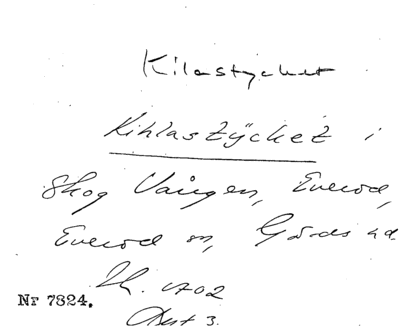 Kilastycket
Kihlastÿcket i
Skog Vången, Everod,
Everod sn, Gärds hd.
Lh. 1702
Nr 7824.
3.